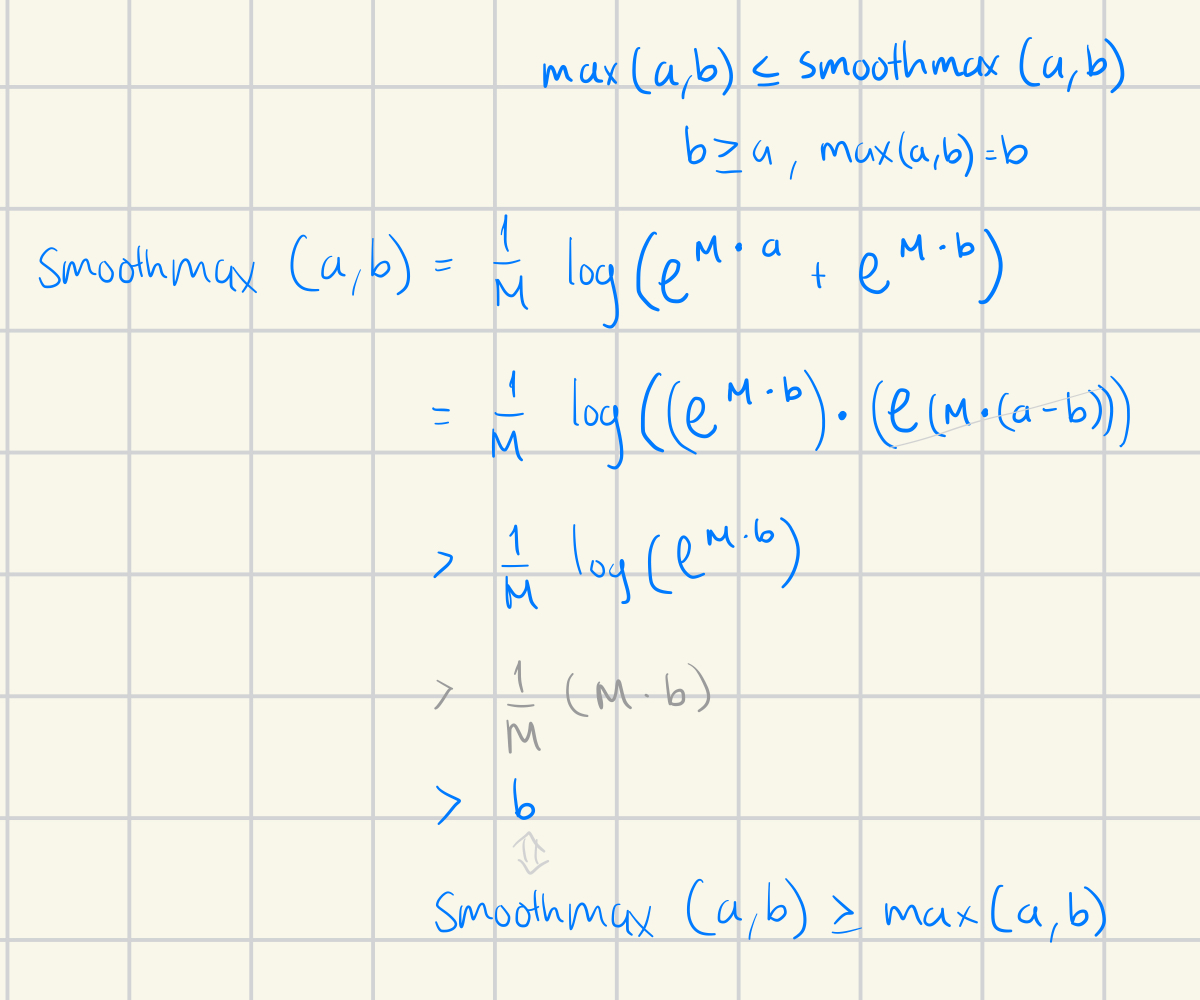 max(a,b) ≤ smoothmax (a,b)
b ≥ a, max(a,b) = b
Smoothmax (a,b) = 1/M log(e^{M·a} + e^{M·b})
= 1/M log((e^{M·b}) · (e(M·(a-b))))
> 1/M log(e^{M·b})
> 1/M (M·b)
> b
⇕
Smoothmax (a,b) ≥ max(a,b)